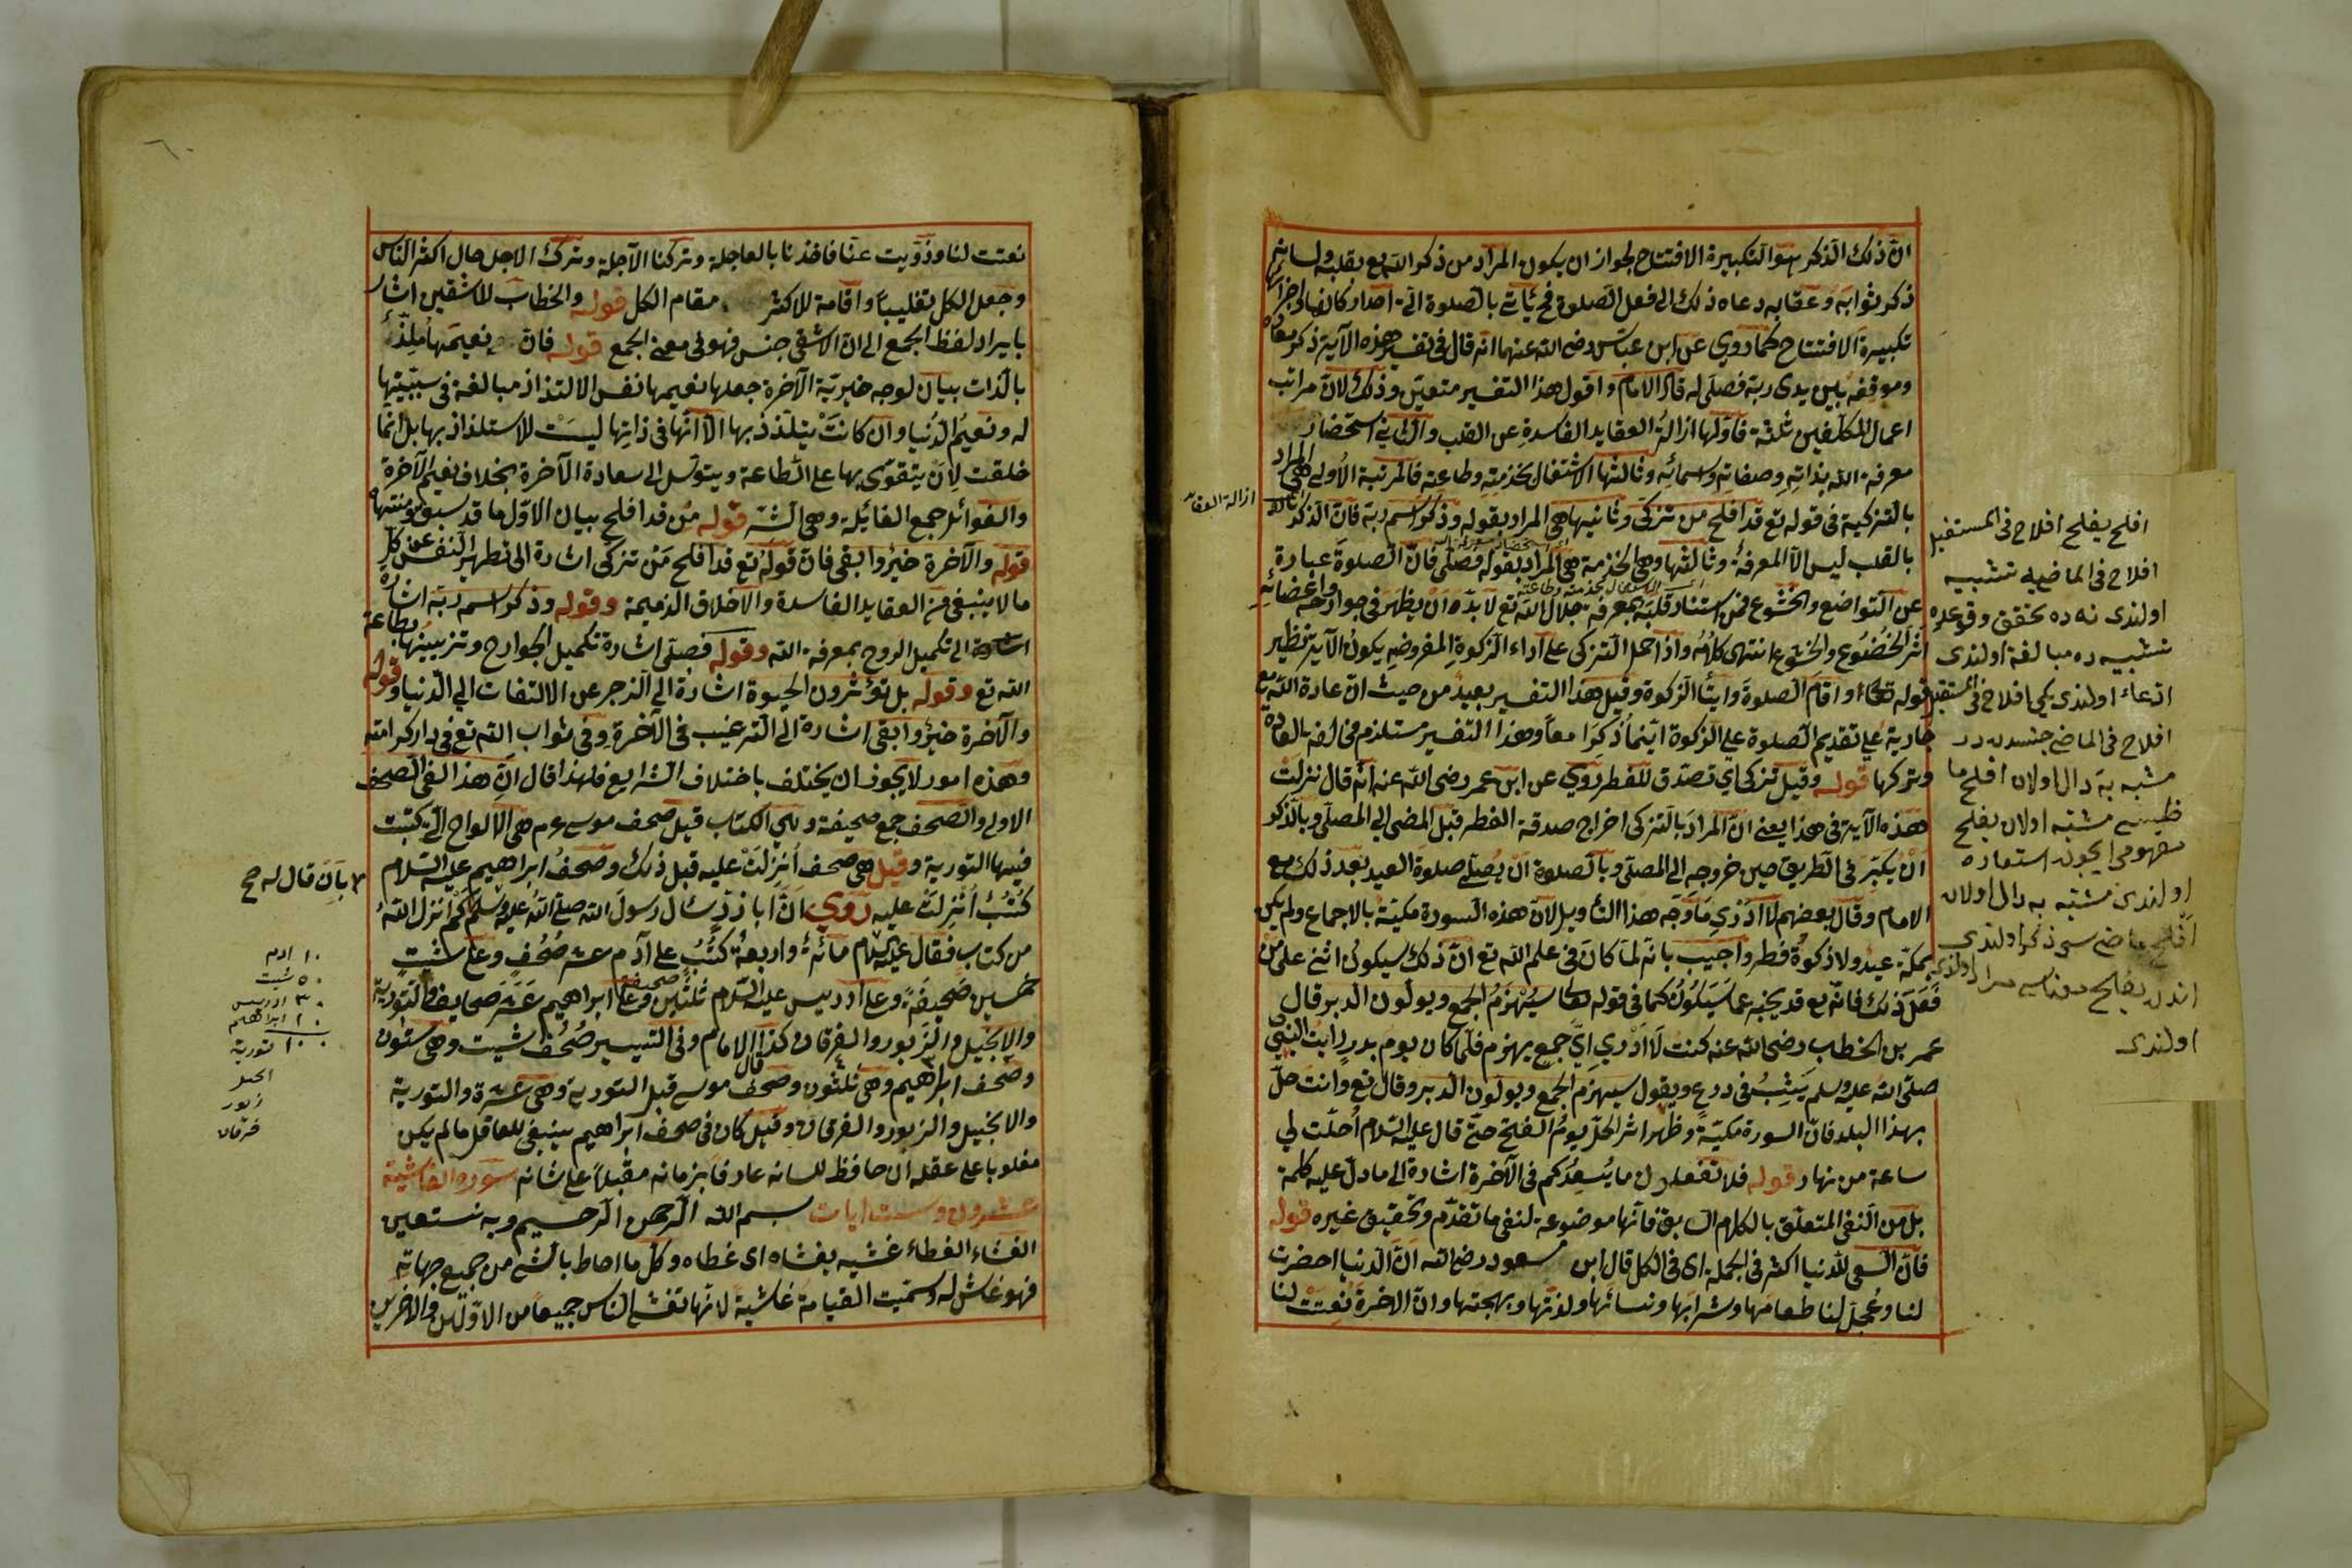 انّ ذلك الذكر هو التكبيرة الافتتاح لجواز ان يكون المراد من ذكر الله تع بقلبه ولسانه
ذكر ثوابه وعقابه دعاه ذلك الى فعل الصلوة فح يأتى بالصلوة التى احد اركانها اجزائها
تكبيرة الافتتاح كما روي عن ابن عباس رضى الله عنهما انه قال فى تفسير هذه الآية ذكر معاده
وموقفه بين يدى ربه فصلى له قال الامام واقول هذا التفسير متعين وذلك لان مراتب
اعمال المكلفين ثلثة فاولها ازالة العقايد الفاسدة عن القلب والثانى استحضار
معرفة الله بذاته وصفاته واسمائه وثالثها الاشتغال بخدمته وطاعته فالمرتبة الاولى هى المراد
بالتزكية فى قوله تع قد افلح من تزكى وثانيها هى المراد بقوله وذكر اسم ربه فان الذكر
بالقلب ليس الا المعرفة وثالثها وهى الخدمة هى المراد بقوله فصلى فان الصلوة عبارة
عن التواضع والخشوع فمن استنار قلبه بمعرفة جلال الله تع لا بد له ان يظهر فى جوارحه واعضائه
اثر الخضوع والخشوع انتهى كلامه واذا حمل التزكى على آداء الزكوة المفروضه يكون الآية نظير
قوله واقام الصلوة وايتاء الزكوة وقيل هذا التفسير بعيد من حيث ان عادة الله تع
جارية على تقديم الصلوة على الزكوة اينما ذكرا معا وهذا التفسير مستلزم مخالفه بالعاده
وتركها قوله وقيل تزكى اي تصدق للفطر روي عن ابن عمر رضى الله عنه انه قال نزلت
هذه الآية فى هذا يعنى ان المراد بالتزكى اخراج صدقة الفطر قبل المضى الى المصلى وبالذكر
ان يكبر فى الطريق حين خروجه الى المصلى وبالصلوة ان يصلى صلوة العيد بعد ذلك مع
الامام وقال بعضهم لا ادري ما وجه هذا التأويل لان هذه السورة مكية بالاجماع ولم يكن
بمكة عيد ولا زكوة فطر واجيب بانه لما كان فى علم الله تع ان ذلك سيكون اثنى على من
فعل ذلك فانه تع قد يخبر عما سيكون كما فى قوله تعالى سيهزم الجمع ويولون الدبر قال
عمر بن الخطاب رضى الله عنه كنت لا ادري اي جمع يهزم فلما كان يوم بدر رايت النبى
صلى الله عليه وسلم يثب فى درع ويقول سيهزم الجمع ويولون الدبر وقال تع وانت حل
بهذا البلد فان السورة مكية وظهر اثر الحل يوم الفتح حتى قال عليه السلام احلت لي
ساعة من نهار قوله فلا تفعلون ما يسعدكم فى الآخرة اشارة الى ما دل عليه كلمة
بل من النفى المتعلق بالكلام السابق فانها موضوعة لنفى ما تقدم وتحقيق غيره قوله
فان السعى للدنيا اكثر فى الجملة اى فى الكل قال ابن مسعود رضى الله ان الدنيا احضرت
لنا وعجل لنا طعامها وشرابها ونسائها ولذتها وبهجتها وان الاخرة نعتت لنا
ازالة العقايد
افلح يفلح افلاح فى المستقبل
افلاح فى الماضى يه تشبيه
اولندى نه ده تحقق وقوعده
تشبيه ده مبالغة اولندى
ادعاء اولندى كى افلاح فى المستقبل
افلاح فى الماضى جنسندندر
مشبه به دال اولان افلح ما
مشبه اولان يفلح
مفهومى ايچون استعاره
اولندى مشبه به دال اولان
افلح ماضى سى ذكر اولندى
اندن يفلح معناسى مراد اولندى
اولندى
٦٠
نعتت لنا وزويت عنا فاخذنا بالعاجلة وتركنا الآجلة وترك الاجل حال اكثر الناس
وجعل الكل تغليبا واقامة للاكثر مقام الكل قوله والخطاب للاشقين اشار
بايراد لفظ الجمع الى ان الاشقى جنس فهو فى معنى الجمع قوله فان نعيمها ملذ
بالذات بيان لوجه خيرية الآخرة جعلها نعيمها نفس الالتذاذ مبالغة فى سببيتها
له ونعيم الدنيا وان كانت يتلذذ بها الا انها فى ذاتها ليست للاستلذاذ بها بل انما
خلقت لان يتقوى بها على الطاعة ويتوسل الى سعادة الآخرة بخلاف نعيم الآخرة
والغوائل جمع الغايلة وهى الشر قوله من قد افلح بيان الاول ما قد سبق ومنتهاه
قوله والآخرة خير وابقى فان قوله تع قد افلح من تزكى اشارة الى تطهير النفس عن كل
مالا ينبغى من العقايد الفاسدة والاخلاق الذميمة وقوله وذكر اسم ربه اشارة
الى تكميل الروح بمعرفة الله وقوله فصلى اشارة تكميل الجوارح وتزيينها بطاعة
الله تع وقوله بل تؤثرون الحيوة اشارة الى الزجر عن الالتفات الى الدنيا وقوله
والآخرة خير وابقى اشارة الى الترغيب فى الآخرة وفى ثواب الله تع فى دار كرامته
وهذه امور لا يجوز ان يختلف باختلاف الشرايع فلهذا قال ان هذا لفى الصحف
الاولى والصحف جمع صحيفة وهى الكتاب قيل صحف موسى عم هى الالواح التى كتبت
فيها التورية وقيل هى صحف انزلت عليه قبل ذلك وصحف ابراهيم عليه السلام
كتب انزلت عليه روي ان ابا ذر سئال رسول الله صلى الله عليه وسلم كم انزل الله
من كتاب فقال عليه السلام مائة واربعة كتب على آدم عشر صحف وعلى شيت
خمسين صحيفة وعلى ادريس عليه السلام ثلثين صحيفة وعلى ابراهيم عشر صحايف والتورية
والانجيل والزبور والفرقان كذا قال الامام وفى التيسير صحف شيت وهى ستون
وصحف ابراهيم وهى ثلثون وصحف موسى قبل التورية وهى عشرة والتورية
والانجيل والزبور والفرقان وقيل كان فى صحف ابراهيم ينبغى للعاقل مالم يكن
مغلوبا على عقله ان حافظ للسانه عارفا بزمانه مقبلا على شانه سورة الغاشية
عشرون وست ايات بسم الله الرحمن الرحيم وبه نستعين
الغشاء الغطاء غشيه يغشاه اى غطاه وكل ما احاط بالشى من جميع جهاته
فهو غاش له وسميت القيامة غاشية لانها تغشى الناس جميعا من الاولين والآخرين
بان قال له صح
١٠ ادم
٥٠ شيت
٣٠ ادريس
١٠ ابراهيم
١٠٠ تورية
انجيل
زبور
فرقان